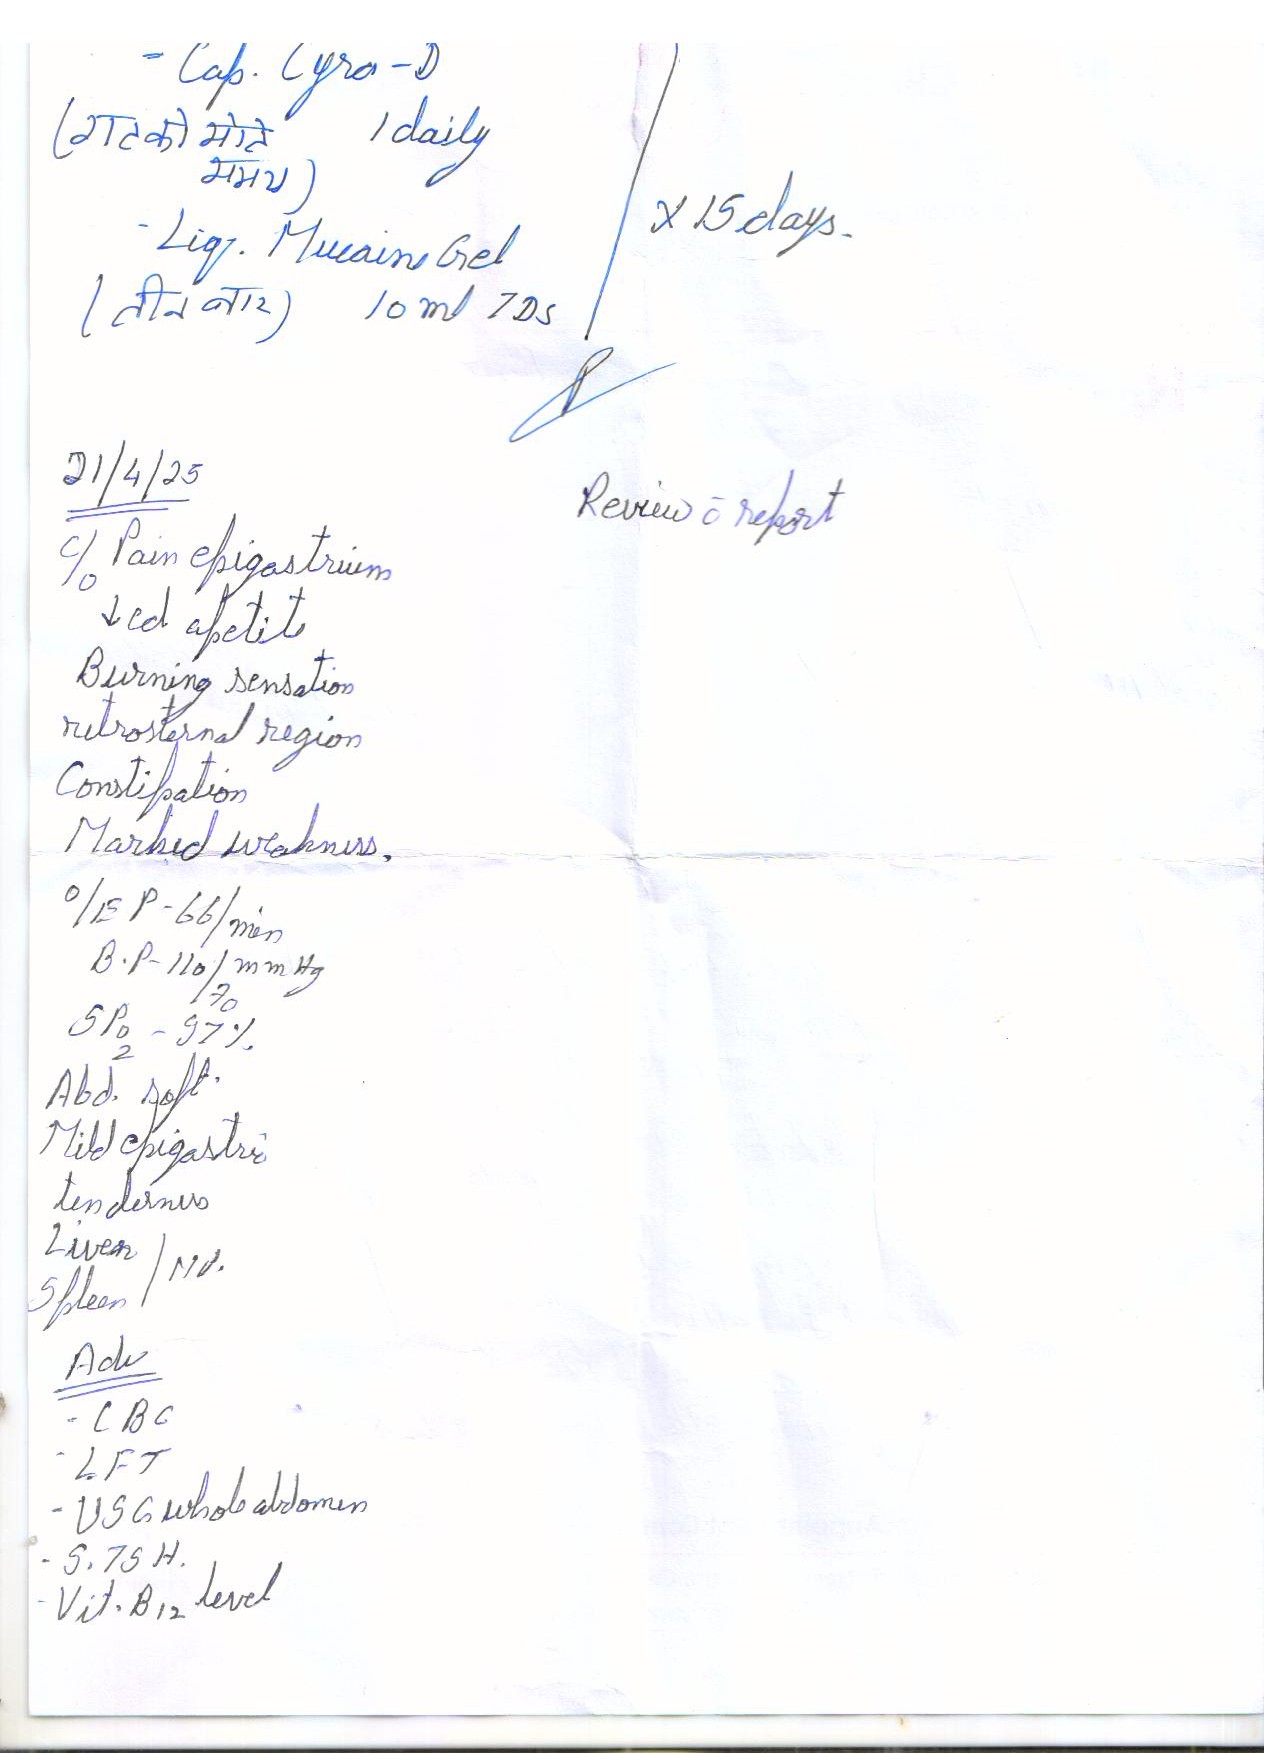 - Cap. Cyra-D
(रात को सोते 1 daily
समय)
- Liq. Mucaine Gel
(तीन बार) 10 ml TDS
X 15 days.
21/4/25
Review c̄ report
c/o Pain epigastrium
↓ced apetite
Burning sensation
retrosternal region
Constipation
Marked weakness.
O/E P-66/min
B.P-110/70 mmHg
SPO2 - 97%.
Abd. soft.
Mild epigastric
tenderness
Liver
Spleen
Adv
- CBC
- LFT
- USG whole abdomen
- S. TSH.
- Vit. B12 level